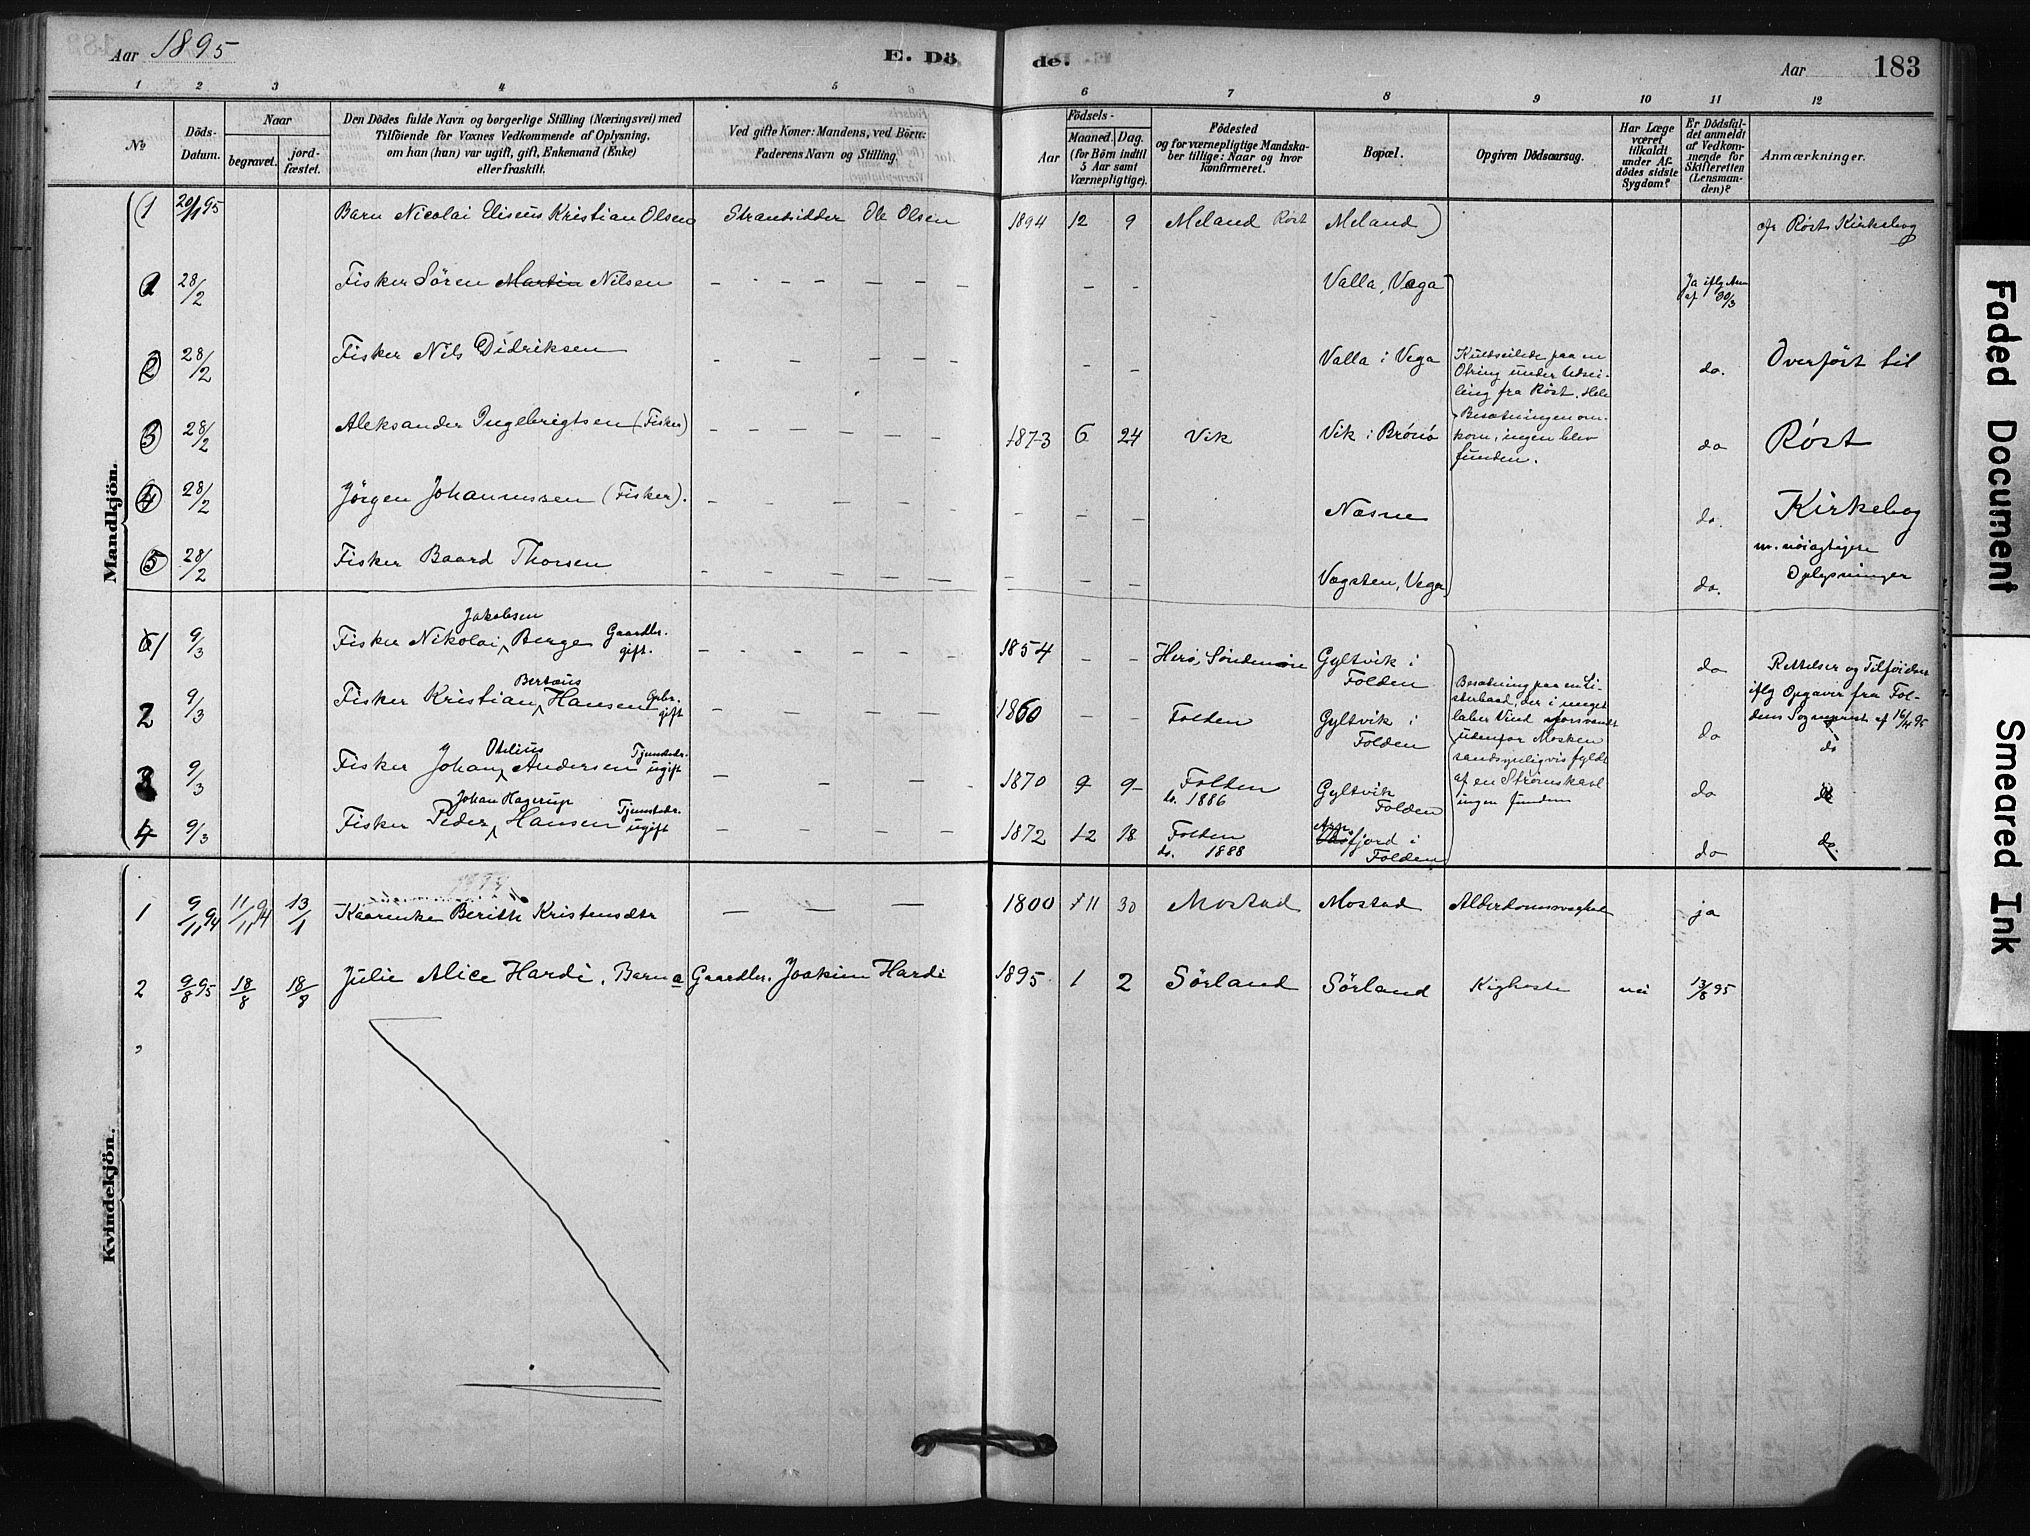 Aar 1895
E. Dö
de.
Aar
183
1 2 3 4 5 6 7 8 9 10 11 12
№
Döds-Datum.
Naar
begravet.
jord-fæstet.
Den Dödes fulde Navn og borgerlige Stilling (Næringsvei) med
Tilföiende for Voxnes Vedkommende af Oplysning,
om han (hun) var ugift, gift, Enkemand (Enke)
eller fraskilt.
Ved gifte Koner: Mandens, ved Börn:
Faderens Navn og Stilling.
Födsels-
Aar
Maaned. Dag.
(for Börn indtil
5 Aar samt
Værnepligtige).
Födested
og for værnepligtige Mandska-
ber tillige: Naar og hvor
konfirmeret.
Bopæl.
Opgiven Dödsaarsag.
Har Læge
været
tilkaldt
under Af-
dödes sidste
Sygdom?
Er Dödsfal-
det anmeldt
af Vedkom-
mende for
Skifteretten
(Lensman-
den)?
Anmærkninger.
Mandkjön.
(1 20/1 95 Barn Nicolai Eliseus Kristian Olsen Strandsidder Ole Olsen 1894 12 9 Meland Røst Meland) cfr Røst Kirkebog
1 28/2 Fisker Sören Martin Nilsen - - - - - - - - Valla, Vega Ja iflg Anm af 30/3
2 28/2 Fisker Nils Didriksen - - - - - - Valla i Vega do. Overført til
Kuldseilede paa en
Otring under Udsei-
ling fra Røst. Hele
Besætningen om-
kom, ingen blev
funden.
3 28/2 Aleksander Ingebrigtsen (Fisker) - - - - - - 1873 6 24 Vik Vik i Brønø do Røst
4 28/2 Jörgen Johannessen (Fisker). - - - - - - - - - Næsne do. Kirkebog
m. nöiagtigere
5 28/2 Fisker Baard Thorsen - - - - - - - - - Vægsten, Vega do. Oplysninger
61 9/3 Fisker Nikolai Jakobsen Berge Gaardbr. gift. - - - - - - 1854 - - Herø, Søndmøre Gyltvik i Folden do Rettelser og Tilföielser
iflg Opgaver fra Fol-
dens Sogneprest af 16/4 95
Besætning paa en Li-
sterbaad, der i meget
laber Vind forsvandt
udenfor Mosken
sandsynligvis fyldt
af en Strømskavl
ingen funden
2 9/3 Fisker Kristian Bertæus Hansen Opbr. gift - - - - - 1860 - - Folden Gyltvik i Folden do do
3 9/3 Fisker Johan Otelius Andersen Tjenstedr. ugift - - - 1870 9 9 Folden do. 1886 Gyltvik Folden do do
4 9/3 Fisker Peder Johan Hagerup Hansen Tjenstedr. ugift - - - - - 1872 12 18 Folden do. 1888 fjord i Folden do do.
Kvindekjön.
1 9/11 94 11/11 94 13/1 Kaarenke Berith Kristensdtr - - - 1800 11 30 Mostad Mostad Alderdomssvaghed ja
2 9/8 95 18/8 18/8 Julie Alice Hardi. Barn a Gaardbr. Joakim Hardi 1895 1 2 Sörland Sörland Kighoste nei 13/8 95
Faded Document
Smeared Ink